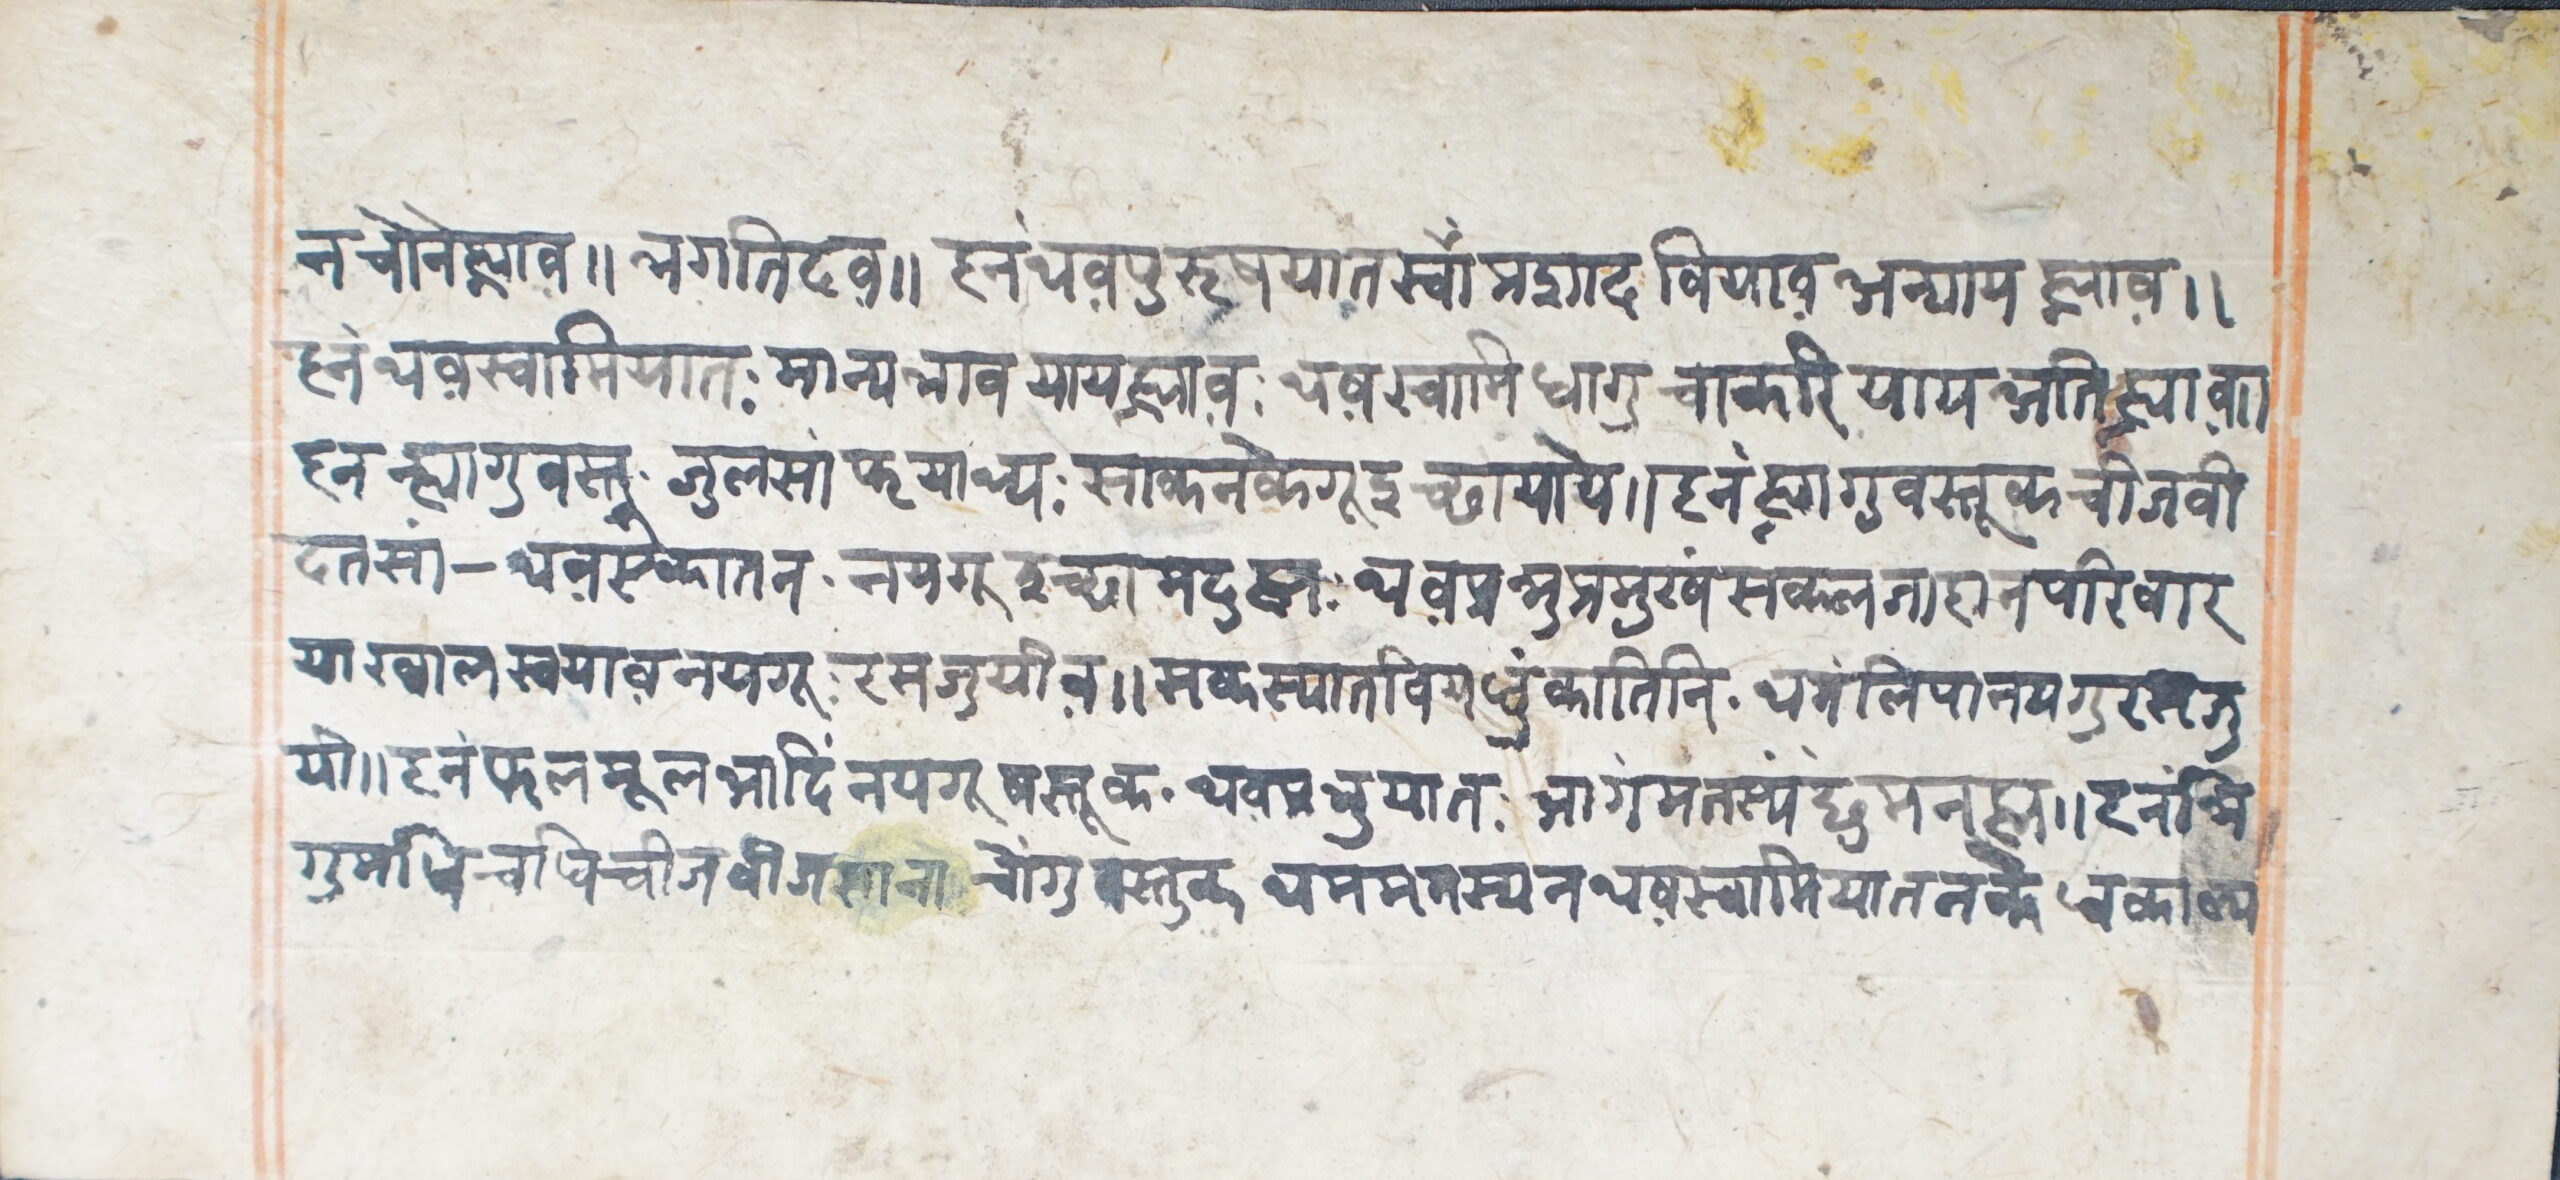 न चोनेह्माव॥ भगतिदव॥ हनं थव पुरूषयात स्वाँ प्रशाद वियाव अन्याय ह्माव॥
हनं थव स्वामियात: मान्य भाव याय ह्माव: थव स्वामि धागु चाकरि याय भति ह्माव॥
हन ह्मागु वस्तु. जुलसां फयांथ्य: साकनकेगू इच्छा यायि॥ हनं ह्मागु वस्तूक चीजवी
दतसां - थव सेकातन. नयगू इच्छा मदु ह्म: थव प्रभु प्रमुखं सकल जाहान परिवार
या ख्वाल स्वयाव नयगू: रसजुयीव॥ मकस्यात विय धुंकातिनि. थमं लिपा नयगु रस जु
यी॥ हनं फलमूल आदिं नयगू वस्तूक. थव प्रभुयात: भागं मतस्यं छुं मन ह्म॥ हनं भि
गु मधि चधि चीजवीज साना चोंगु वस्तुक थमं मनस्यन थव स्वामियात नकै